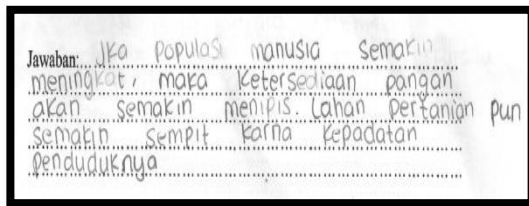 Jawaban: Jka populasi manusia semakin
meningkat, maka ketersediaan pangan
akan semakin menipis. Lahan pertanian pun
semakin sempit karna kepadatan
penduduknya